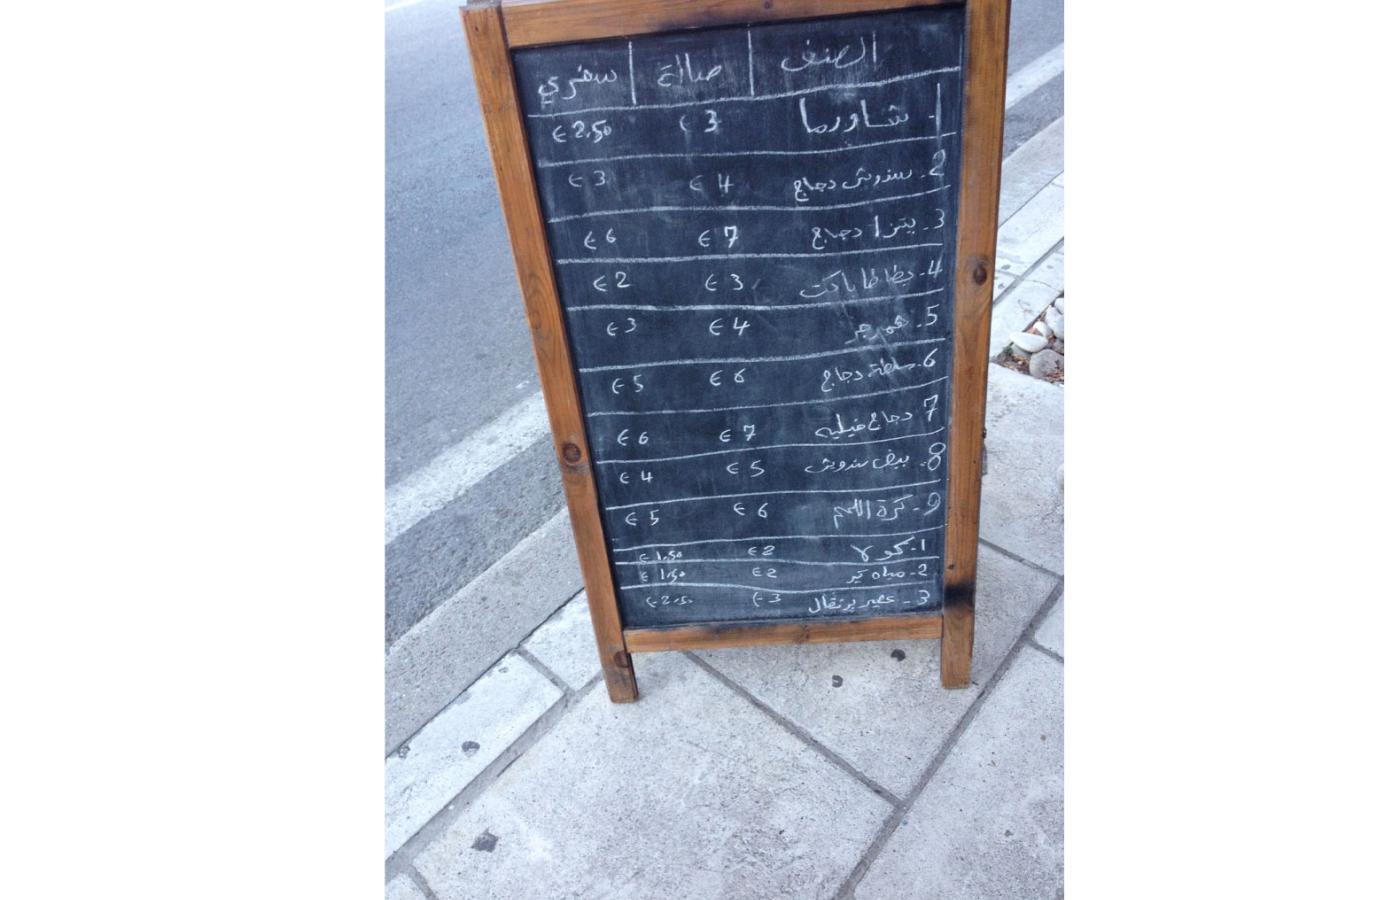 الصنف صالة سفري
1. شاورما 3 € 2,50 €
2. سندوش دجاج 4 € 3 €
3. بتزا دجاج 7 € 6 €
4. بطاطا باكت 3 € 2 €
5. همبرجر 4 € 3 €
6. سلطة دجاج 6 € 5 €
7 دجاج فيليه 7 € 6 €
8. بيف سندوش 5 € 4 €
9. كرة اللحم 6 € 5 €
1. كولا 2 € 1,50 €
2. مياه 2 € 1,50 €
3. عصير برتقال 3 € 2,50 €